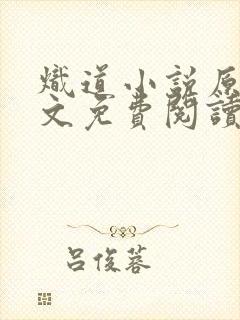 熾道小說原
文免費閱讀
呂俊蓉